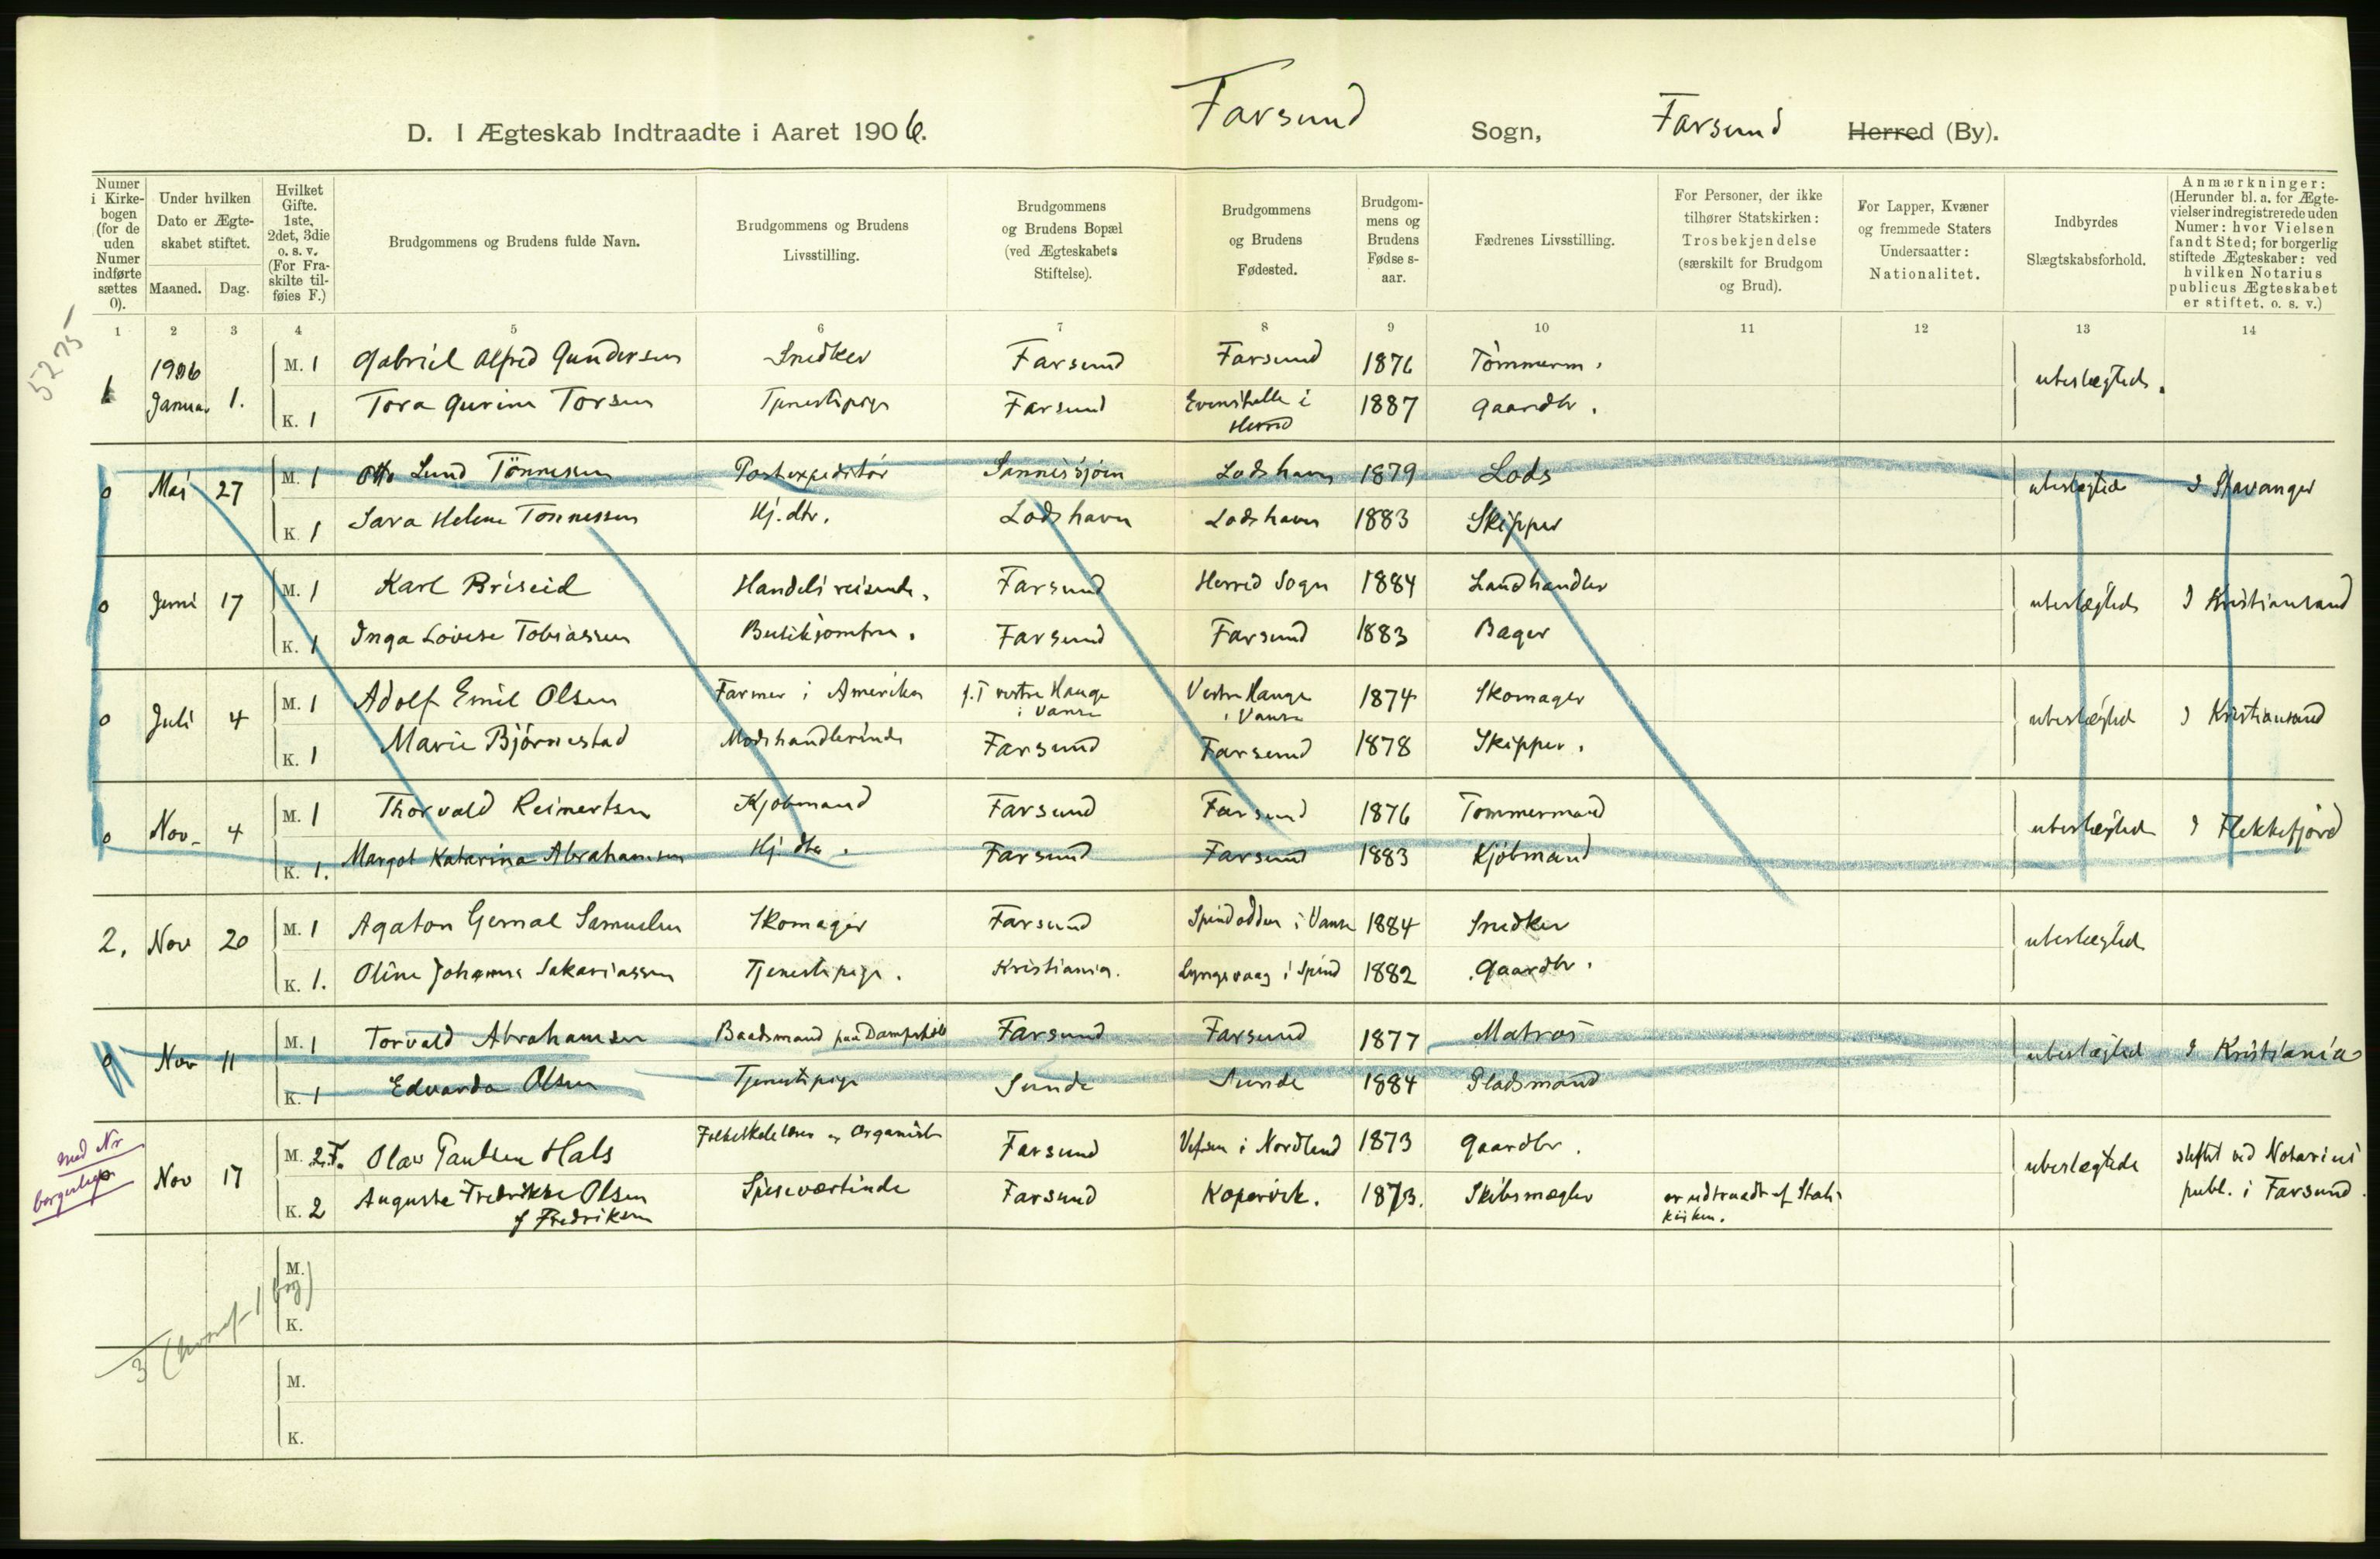 Farsund Farsund
D. I Ægteskab Indtraadte i Aaret 1906. Sogn, Herred (By).
Numer i Kirkebogen (for de uden Numer indførte sættes 0).
Under hvilken Dato er Ægteskabet stiftet.
Maaned. Dag.
Hvilket Gifte. 1ste, 2det, 3die o. s. v. (For Fraskilte tilføies F.)
Brudgommens og Brudens fulde Navn.
Brudgommens og Brudens Livsstilling.
Brudgommens og Brudens Bopæl (ved Ægteskabets Stiftelse).
Brudgommens og Brudens Fødested.
Brudgommens og Brudens Fødselsaar.
Fædrenes Livsstilling.
For Personer, der ikke tilhører Statskirken: Trosbekjendelse (særskilt for Brudgom og Brud).
For Lapper, Kvæner og fremmede Staters Undersaatter: Nationalitet.
Indbyrdes Slægtskabsforhold.
Anmærkninger: (Herunder bl. a. for Ægtevielser indregistrerede uden Numer: hvor Vielsen fandt Sted; for borgerlig stiftede Ægteskaber: ved hvilken Notarius publicus Ægteskabet er stiftet. o. s. v.)
1 2 3 4 5 6 7 8 9 10 11 12 13 14
5275
1 1906 Januar 1. M. 1 Gabriel Alfred Gundersen Snedker Farsund Farsund 1876 Tømmerm. ubeslægtede.
K. 1 Tora Gurine Torsen Tjenestepige Farsund i Herred 1887 Gaardbr.
0 Mai 27 M. 1 Otto Lund Tönnesen Postexpeditör Sannessjøen Lodshavn 1879 Lods ubeslægtede I Stavanger
K. 1 Sara Helene Tönnessen Hj. dtr. Lodshavn Lodshavn 1883 Skipper
0 Juni 17 M. 1 Karl Briseid Handelsreisende. Farsund Herred Sogn 1884 Landhandler ubeslægtede I Kristiansand
K. 1 Inga Lovise Tobiassen Butikjomfru. Farsund Farsund 1883 Bager
0 Juli 4 M. 1 Adolf Emil Olsen Farmer i Amerika f. T vestre Hauge i Vanse Vestre Hauge i Vanse 1874 Skomager ubeslægted I Kristiansand
K. 1 Marie Björnestad Modehandlerinde Farsund Farsund 1878 Skipper.
0 Nov. 4 M. 1 Thorvald Reimertsen Kjøbmand Farsund Farsund 1876 Tömmermand ubeslægted I Flekkefjord
K. 1. Margot Katarina Abrahamsen Hj. dtr. Farsund Farsund 1883 Kjöbmand
2. Nov 20 M. 1 Agaton Gemal Samuelsen Skomager Farsund Spindodden i Vanse 1884 Snedker ubeslægted
K. 1. Oline Johanne Sakariassen Tjenestepige. Kristiania. Lyngsvaag i Spind 1882 Gaardbr.
0 Nov 11 M. 1 Torvald Abrahamsen Baadsmand paa Dampskib Farsund Farsund 1877 Matros ubeslægted I Kristiania
K. 1 Edvarda Olsen Tjenestepige Sunde Sunde 1884 Pladsmand
med Nr borgerlige
Nov 17 M. 2.F. Olav Paulsen Hals Folkeskolelærer og Organist Farsund Vefsen i Nordland 1873 Gaardbr. ubeslægtede stiftet ved Notarius publ. i Farsund.
K. 2 Auguste Fredrikke Olsen f Fredriksen Spiseværtinde Farsund Kopervik. 1873. Skibsmægler er udtraadt af Statskirken.
M.
K.
3 (hvoraf 1 brg)
M.
K.